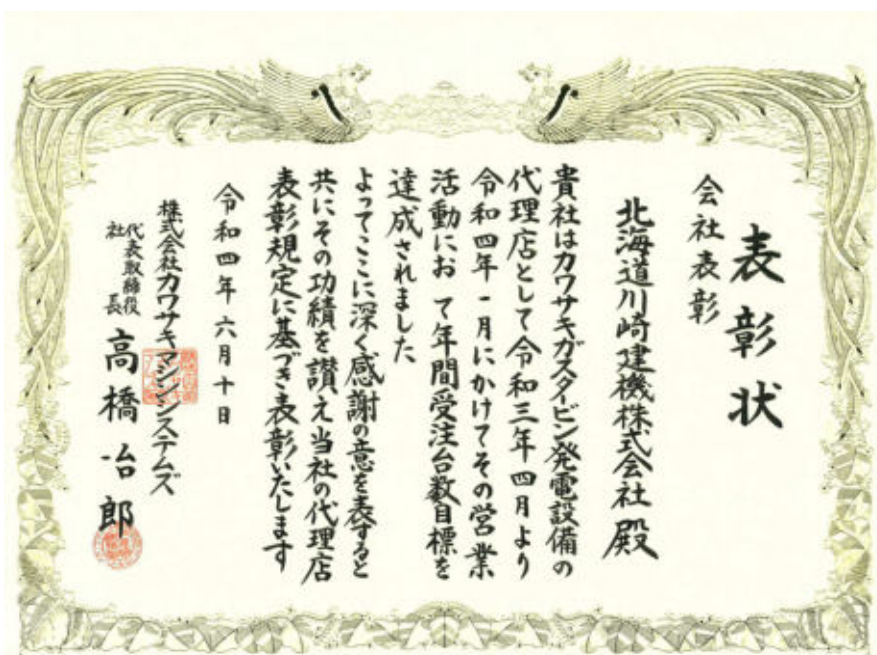 表彰状
会社表彰
北海道川崎建機株式会社 殿
貴社はカワサキガスタービン発電設備の
代理店として令和三年四月より
令和四年一月にかけてその営業
活動にお て年間受注台数目標を
達成されました
よってここに深く感謝の意を表すると
共にその功績を讃え当社の代理店
表彰規定に基づき表彰いたします
令和四年六月十日
株式会社カワサキマシンシステムズ
代表取締役
社長
高橋治郎